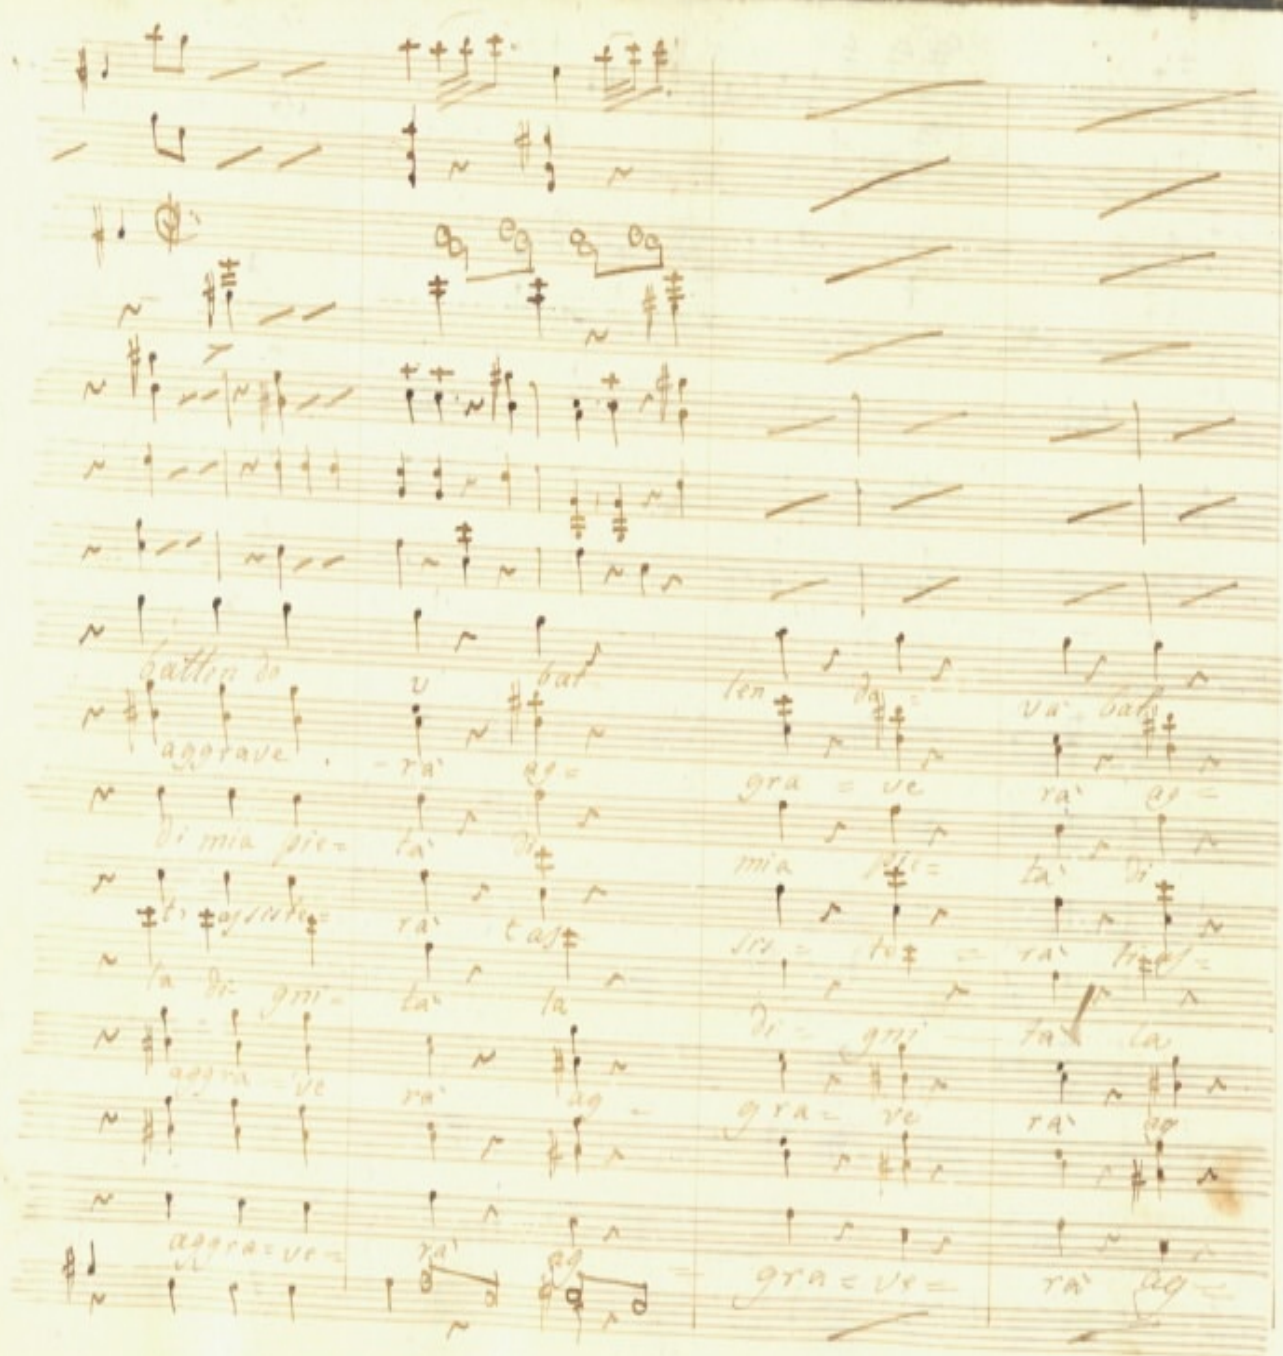 batten do v bat ten do va bat
aggrave - rà ag= gra = ve rà ag=
di mia pie= tà di mia pie= tà di
ti assiste= rà t'as sis = te = rà
la di- gni- tà la di- gni tà la
aggra - ve rà ag - gra= ve rà ag
aggra=ve= rà ag= gra=ve= rà ag=